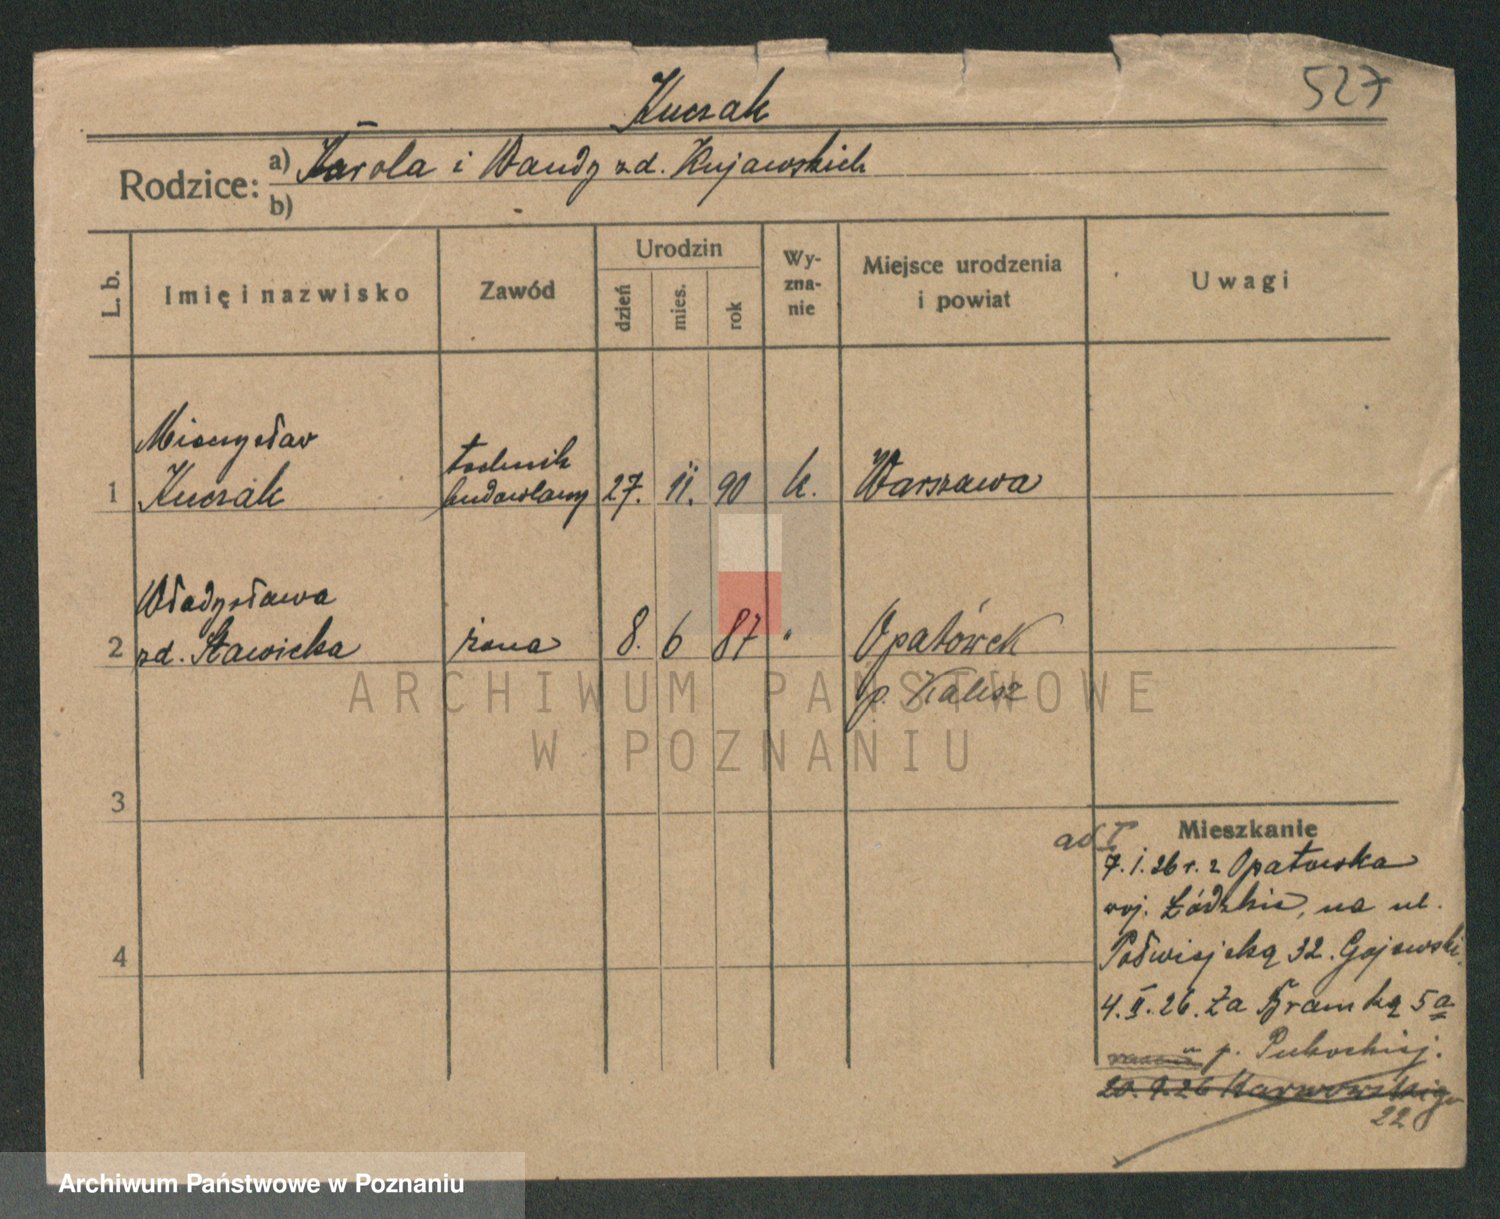 527
Kuczak
Rodzice: a) Karola i Wandy zd. Kujawskich
b)
L. b.
Imię i nazwisko
Zawód
Urodzin
dzień
mies.
rok
Wy-
zna-
nie
Miejsce urodzenia
i powiat
Uwagi
Mieczysław
technik
1 Kuczak budowlany 27. II. 90 k. Warszawa
Władysława
2 zd. Stawicka żona 8. 6 87 " Opatówek
p. Kalisz
ARCHIWUM PAŃSTWOWE
W POZNANIU
3
ad I Mieszkanie
7. I. 26 r. z Opatowska
woj. Łódzkie, na ul.
Półwiejską 32. Gajewski.
4
4. II. 26. Za Bramką 5a
u p.
20. 9. 26 Karwowskiego
22
Archiwum Państwowe w Poznaniu